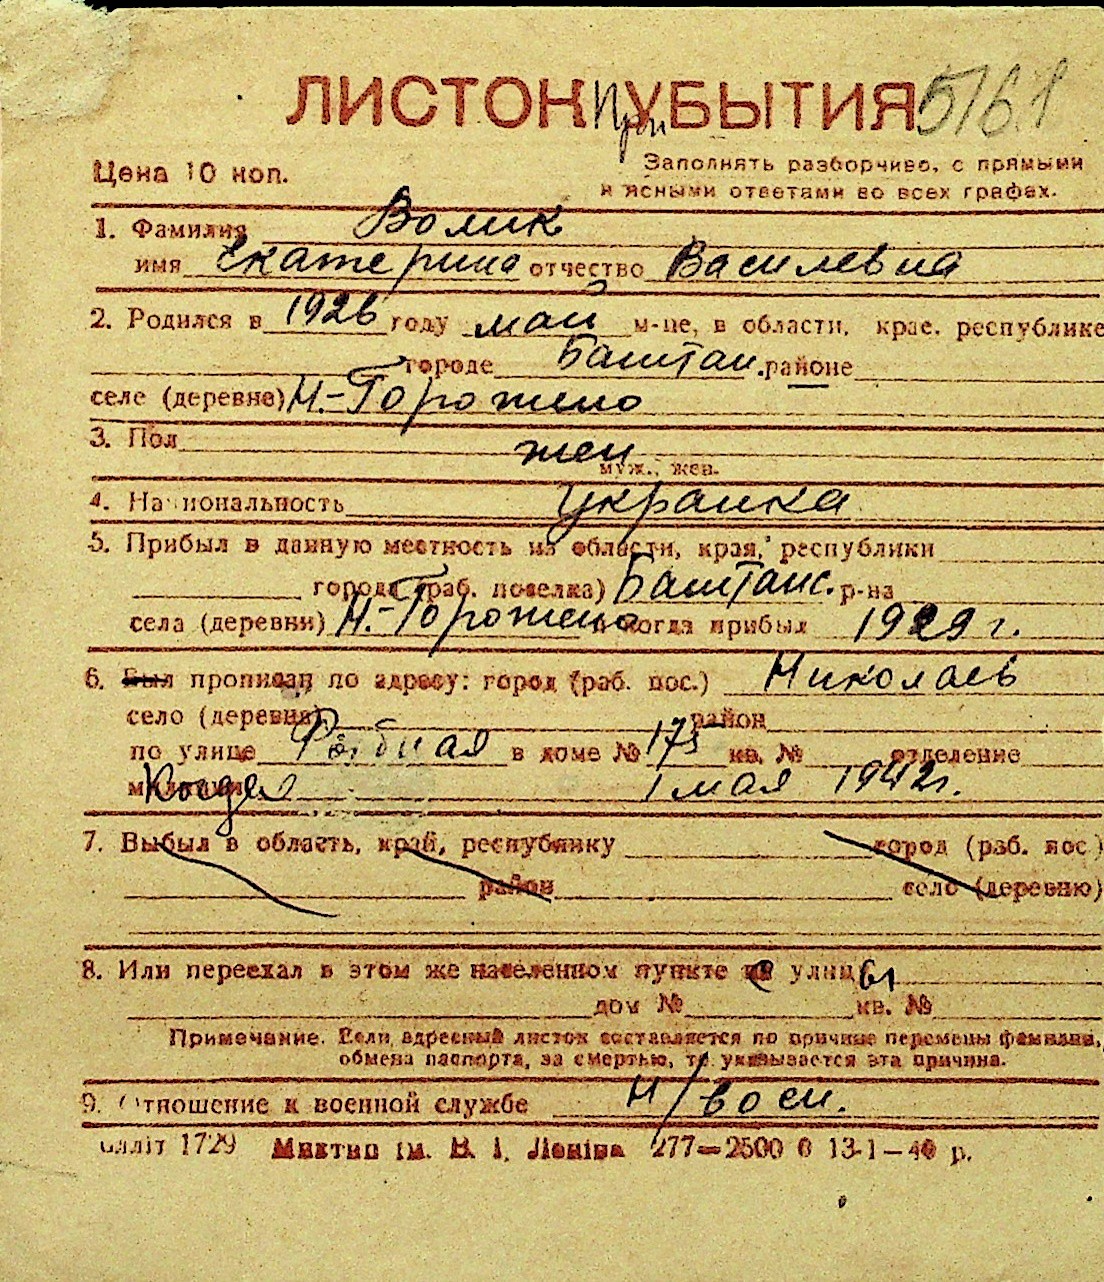 ЛИСТОК При УБЫТИЯ 5161
Цена 10 коп.
Заполнять разборчиво, с прямыми
и ясными ответами во всех графах.
1. Фамилия Волик
имя Екатерина отчество Василевна
2. Родился в 1926 году май м-це, в области, крае, республике
городе Баштан. районе
селе (деревне) Н.-Горожено
3. Пол жен
муж., жен.
4. Национальность украинка
5. Прибыл в данную местность из области, края, республики
города (раб. поселка) Баштанс. р-на
села (деревни) Н.-Горожено и когда прибыл 1929 г.
6. Был прописан по адресу: город (раб. пос.) Николаев
село (деревня) район
по улице в доме № 175 кв. № отделение
милиции Когда 1 мая 1942 г.
7. Выбыл в область, край, республику город (раб. пос.)
район село (деревню)
8. Или переехал в этом же населенном пункте с улицы
дом № кв. №
Примечание. Если адресный листок составляется по причине перемены фамилии,
обмена паспорта, за смертью, то указывается эта причина.
9. Отношение к военной службе н/воен.
1729 ім. В. І. Леніна 277—2500 0 13-1—40 р.